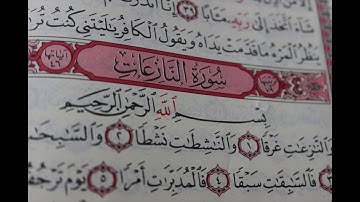 شَآءَ ٱتَّخَذَ إِلَىٰ رَبِّهِۦ مَـَٔابًا ٣٩ إِنَّآ أَنذَ
يَنظُرُ ٱلْمَرْءُ مَا قَدَّمَتْ يَدَاهُ وَيَقُولُ ٱلْكَافِرُ يَٰلَيْتَنِى كُنتُ تُرَ
آياتها ٤٦ سُورَةُ النَّازِعَاتِ
بِسْمِ ٱللَّهِ ٱلرَّحْمَٰنِ ٱلرَّحِيمِ
وَٱلنَّٰزِعَٰتِ غَرْقًا ١ وَٱلنَّٰشِطَٰتِ نَشْطًا ٢ وَٱلسَّٰبِحَٰتِ
٣ فَٱلسَّٰبِقَٰتِ سَبْقًا ٤ فَٱلْمُدَبِّرَٰتِ أَمْرًا ٥ يَوْمَ تَرْجُفُ